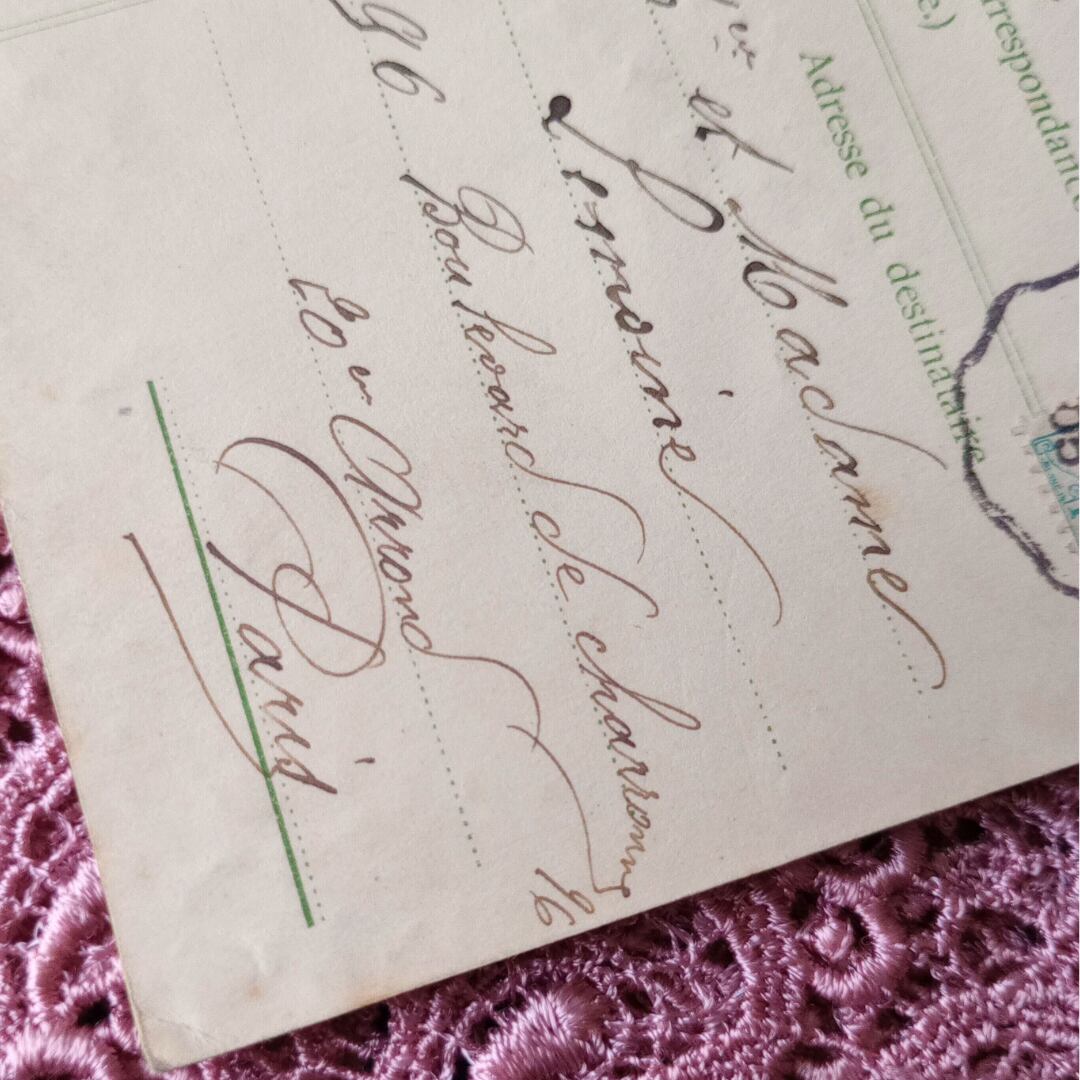 rrespondance
e.)
Adresse du destinataire
et Madame
Lemoine
96 Boulevard de charronne
96
20 e Arrond
Paris
05